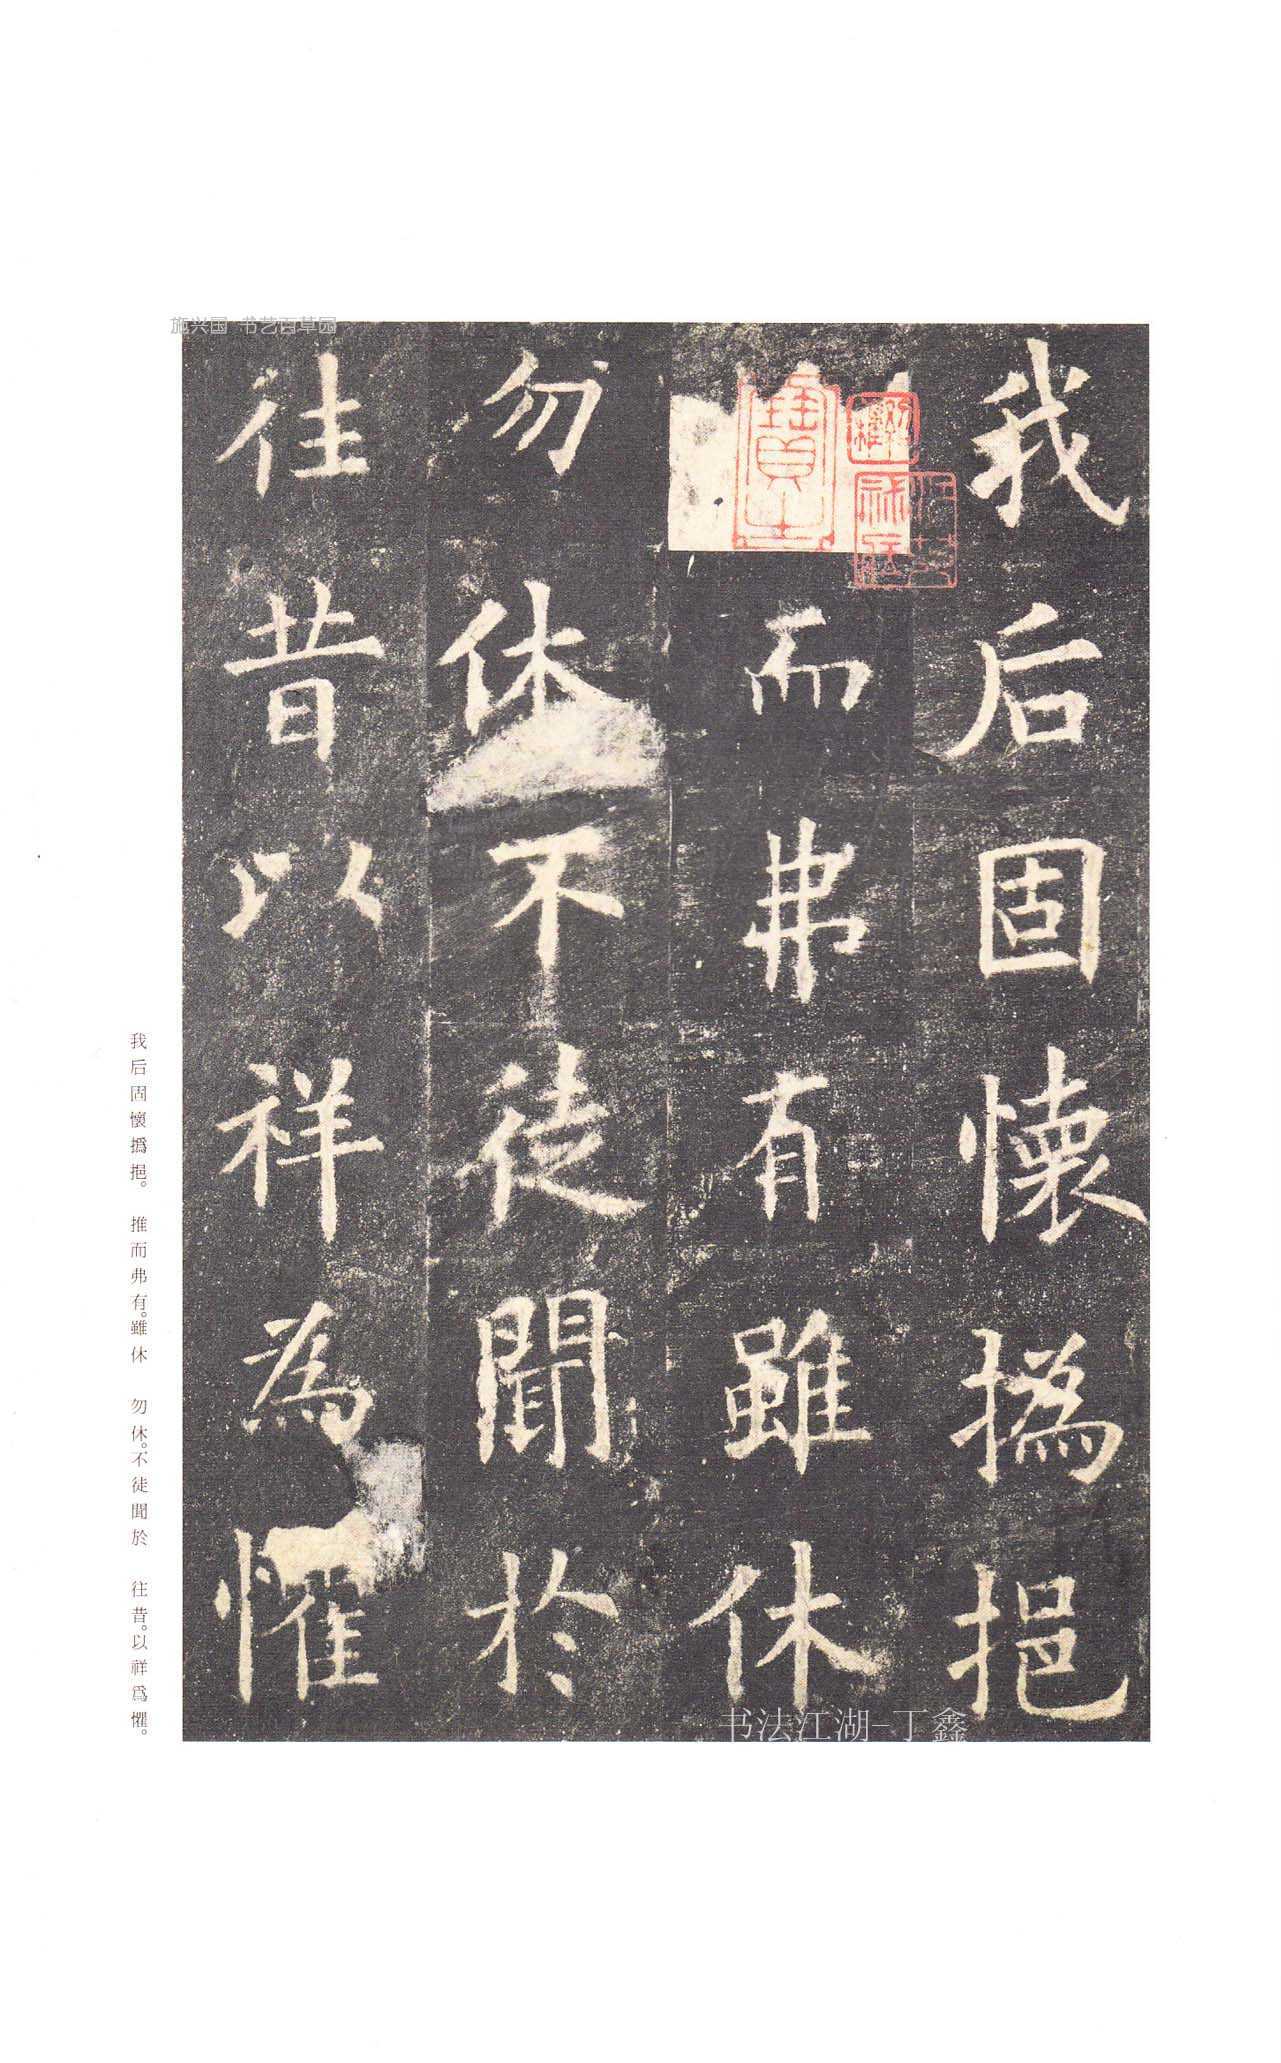 施兴国 书艺百草园
我后固懷撝挹
而弗有雖休
勿休不徒聞於
往昔以祥為懼
我后固懷撝挹。 推而弗有。雖休 勿休。不徒聞於 往昔。以祥爲懼。
书法江湖-丁鑫